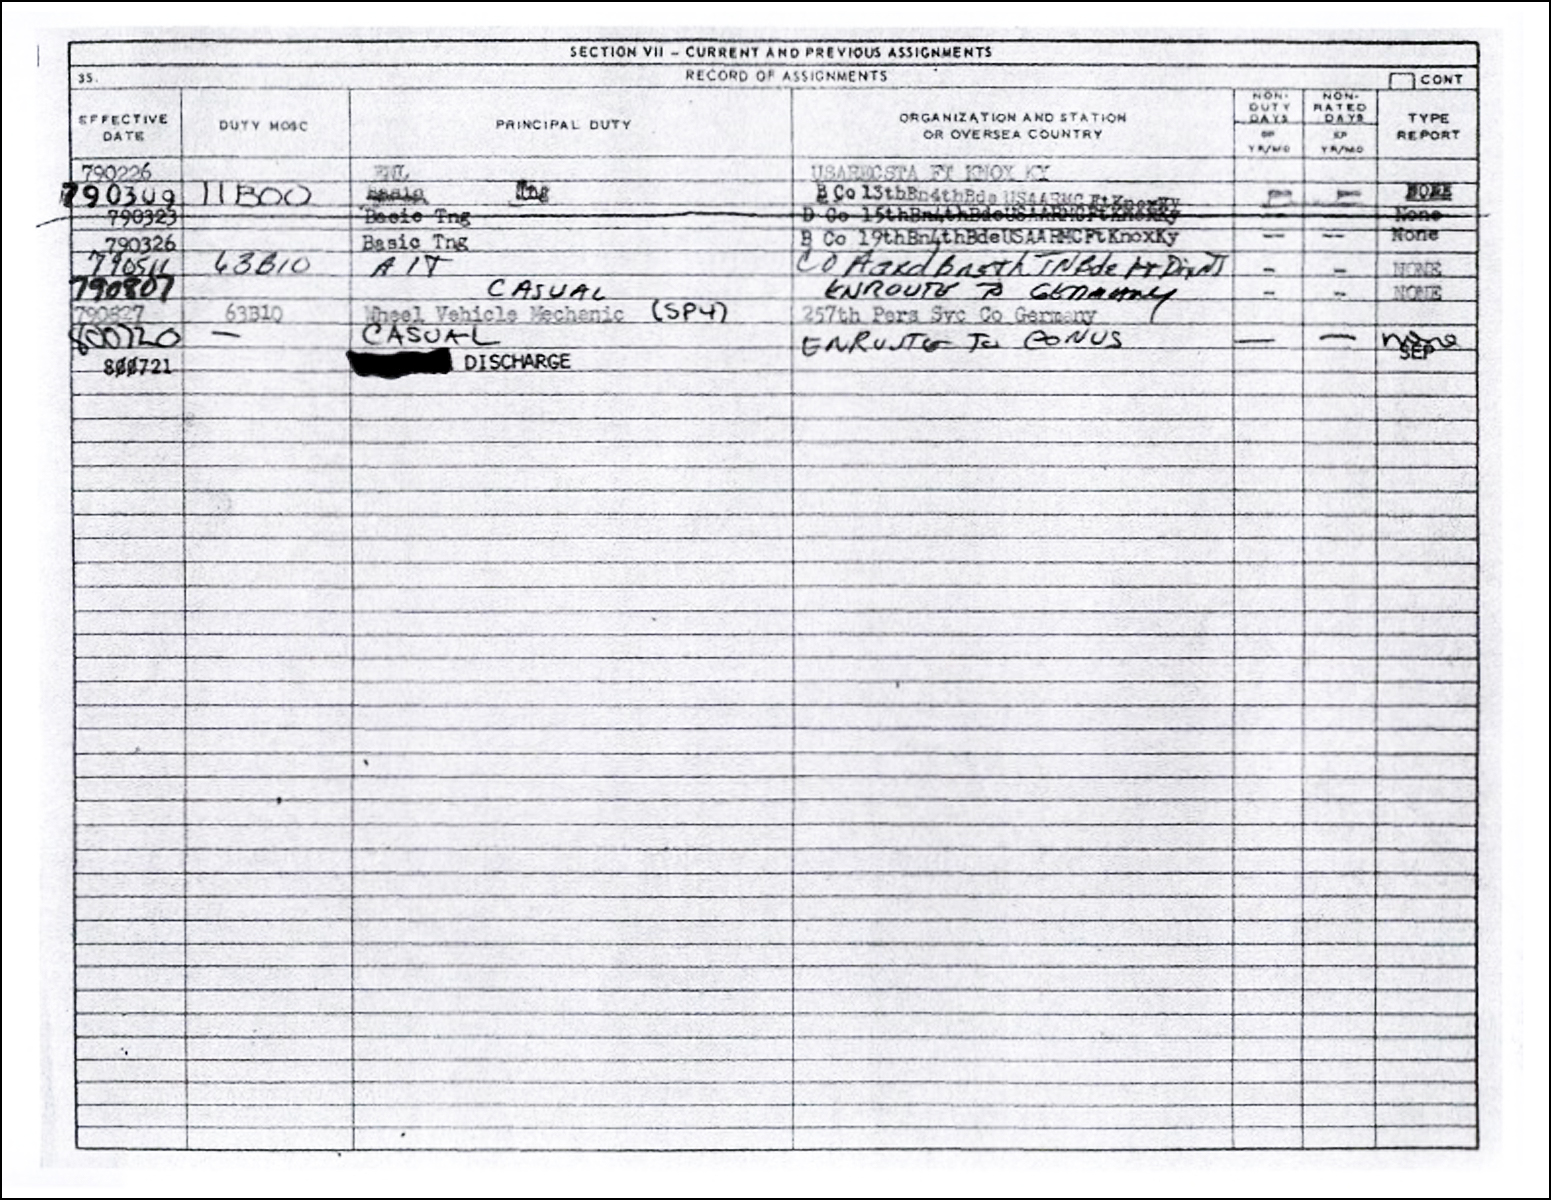 SECTION VII – CURRENT AND PREVIOUS ASSIGNMENTS
35. RECORD OF ASSIGNMENTS CONT
EFFECTIVE DATE DUTY MOSC PRINCIPAL DUTY ORGANIZATION AND STATION OR OVERSEA COUNTRY NON-DUTY DAYS YR/MO NON-RATED DAYS YR/MO TYPE REPORT
790226 USARECSTA FT KNOX KY
790309 11B00 Basic Tng B Co 13thBn4thBde USAARMC FtKnoxKy – – NONE
790323 Basic Tng D Co 15thBn4thBdeUSAARMCFtKnoxKy None
790326 Basic Tng B Co 19thBn4thBdeUSAARMCFtKnoxKy -- -- None
790511 63B10 AIT CO A 3rd Bn 5th TNBde Ft Dix NJ – – NONE
790807 CASUAL ENROUTE TO GERMANY – – NONE
790827 63B10 Wheel Vehicle Mechanic (SP4) 257th Pers Svc Co Germany
800720 — CASUAL ENROUTE TO CONUS — — none
800721 DISCHARGE SEP